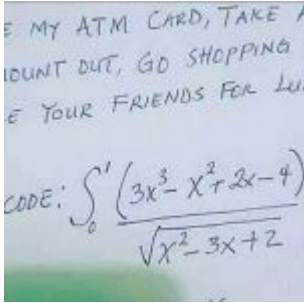 MY ATM CARD, TAKE
OUT, GO SHOPPING
YOUR FRIENDS FOR
CODE: ∫₀¹ (3x³ - x² + 2x - 4) / √(x² - 3x + 2)